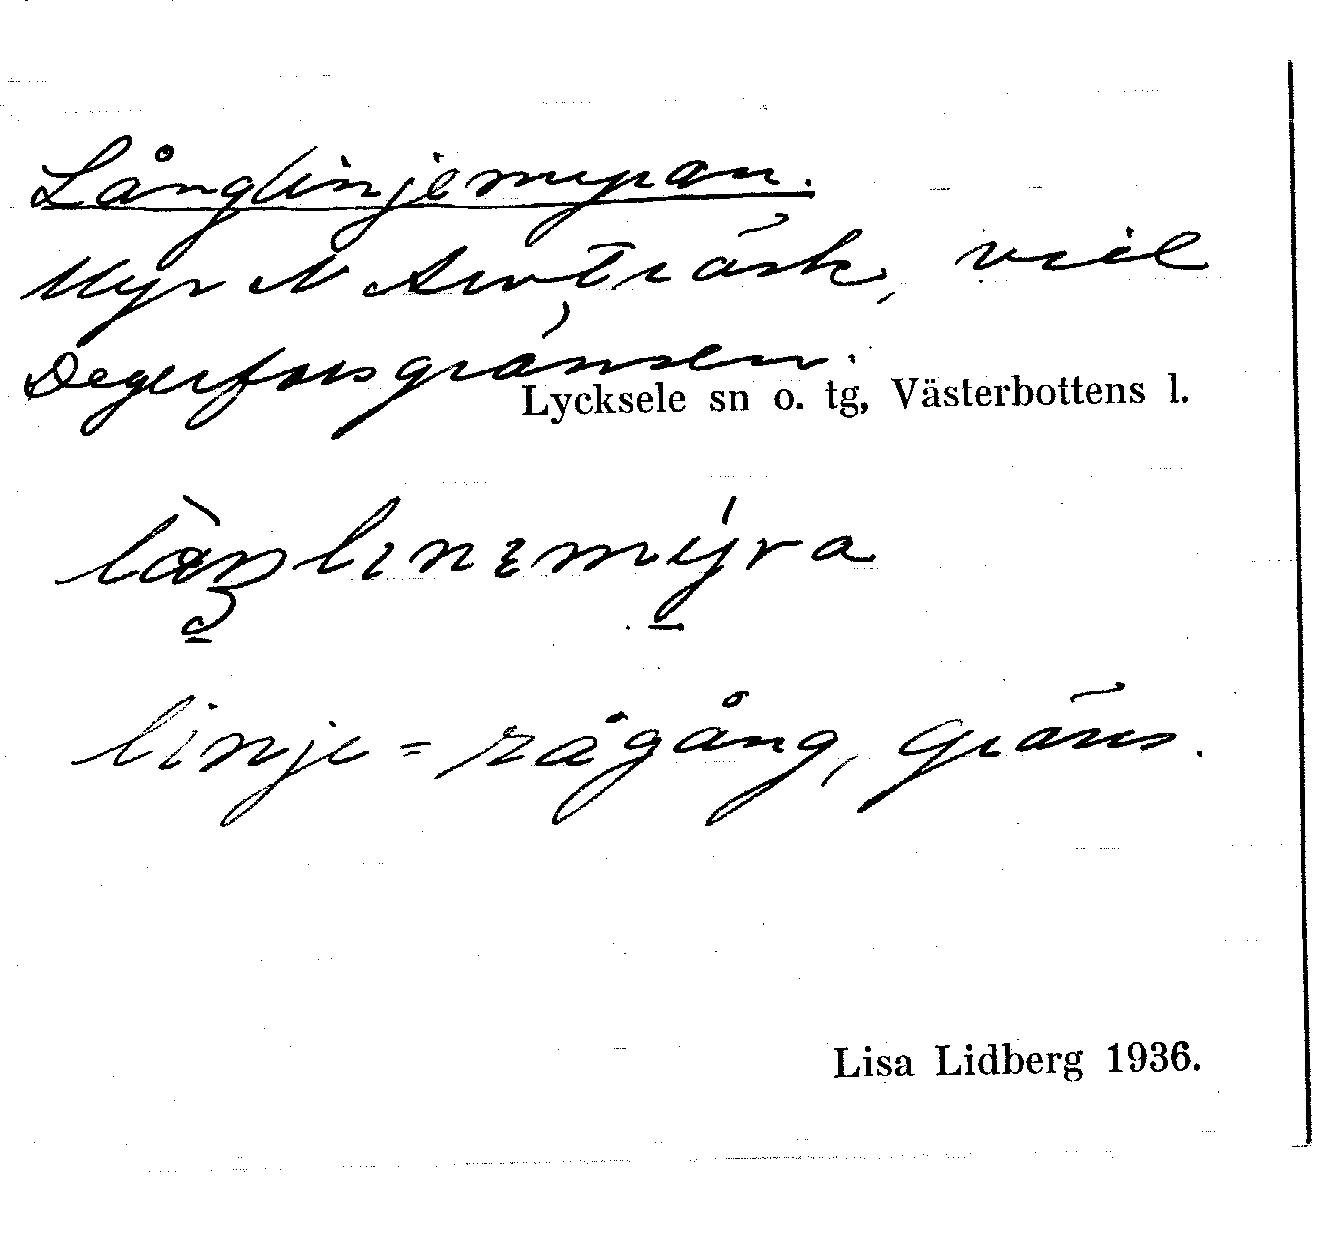 Långlinjemyran.
Myr N Arvträsk, vid
Degerforsgränsen.
Lycksele sn o. tg, Västerbottens l.
linje = rågång, gräns.
Lisa Lidberg 1936.